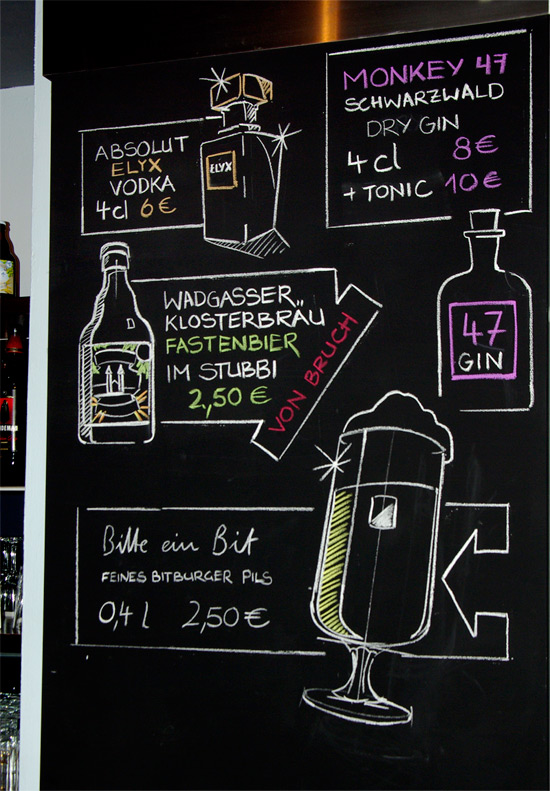 ABSOLUT
ELYX
VODKA
4cl 6€
ELYX
MONKEY 47
SCHWARZWALD
DRY GIN
4cl 8€
+ TONIC 10€
WADGASSER
KLOSTERBRÄU
FASTENBIER
IM STUBBI
2,50 €
VON BRUCH
47
GIN
Bitte ein Bit
FEINES BITBURGER PILS
0,4 l 2,50€